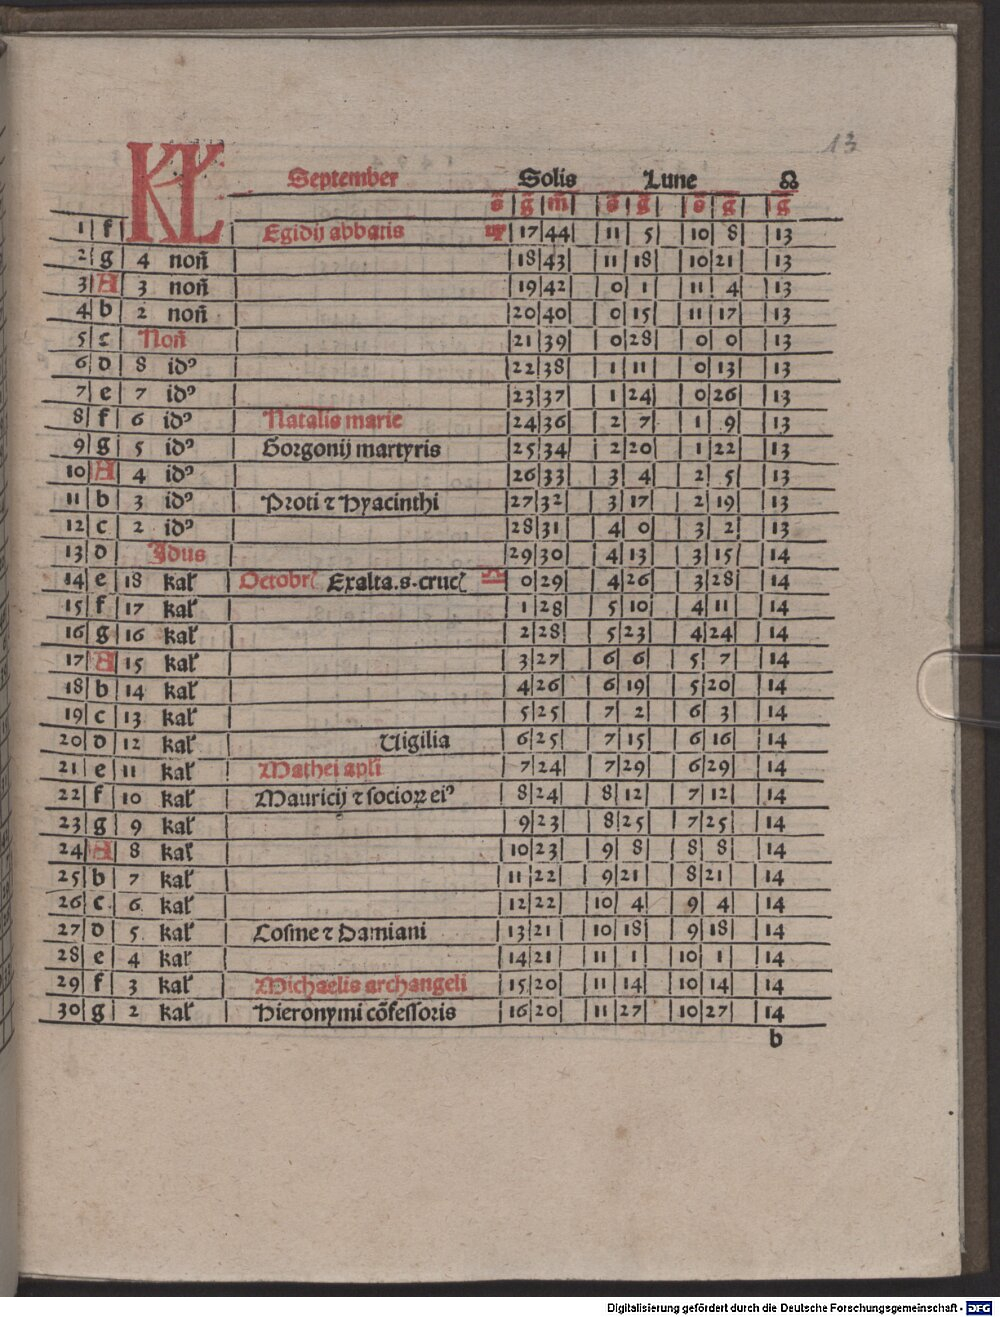 13
KL September Solis Lune ☊
s̄ ḡ m̄ s̄ ḡ s̄ g g
1 f Egidij abbatis ♍ 17 44 11 5 10 8 13
2 g 4 noñ 18 43 11 18 10 21 13
3 A 3 noñ 19 42 0 1 11 4 13
4 b 2 noñ 20 40 0 15 11 17 13
5 c Noñ 21 39 0 28 0 0 13
6 d 8 idꝰ 22 38 1 11 0 13 13
7 e 7 idꝰ 23 37 1 24 0 26 13
8 f 6 idꝰ Natalis marie 24 36 2 7 1 9 13
9 g 5 idꝰ Gorgonij martyris 25 34 2 20 1 22 13
10 A 4 idꝰ 26 33 3 4 2 5 13
11 b 3 idꝰ Proti ⁊ Hyacinthi 27 32 3 17 2 19 13
12 c 2 idꝰ 28 31 4 0 3 2 13
13 d Idus 29 30 4 13 3 15 14
14 e 18 kal' Octobr' Exalta.s.cruc' ♎ 0 29 4 26 3 28 14
15 f 17 kal' 1 28 5 10 4 11 14
16 g 16 kal' 2 28 5 23 4 24 14
17 A 15 kal' 3 27 6 6 5 7 14
18 b 14 kal' 4 26 6 19 5 20 14
19 c 13 kal' 5 25 7 2 6 3 14
20 d 12 kal' Uigilia 6 25 7 15 6 16 14
21 e 11 kal' Mathei apl'i 7 24 7 29 6 29 14
22 f 10 kal' Mauricij ⁊ socioꝝ eiꝰ 8 24 8 12 7 12 14
23 g 9 kal' 9 23 8 25 7 25 14
24 A 8 kal' 10 23 9 8 8 8 14
25 b 7 kal' 11 22 9 21 8 21 14
26 c 6 kal' 12 22 10 4 9 4 14
27 d 5 kal' Cosme ⁊ Damiani 13 21 10 18 9 18 14
28 e 4 kal' 14 21 11 1 10 1 14
29 f 3 kal' Michaelis archangeli 15 20 11 14 10 14 14
30 g 2 kal' Hieronymi cōfessoris 16 20 11 27 10 27 14
b
Digitalisierung gefördert durch die Deutsche Forschungsgemeinschaft - DFG